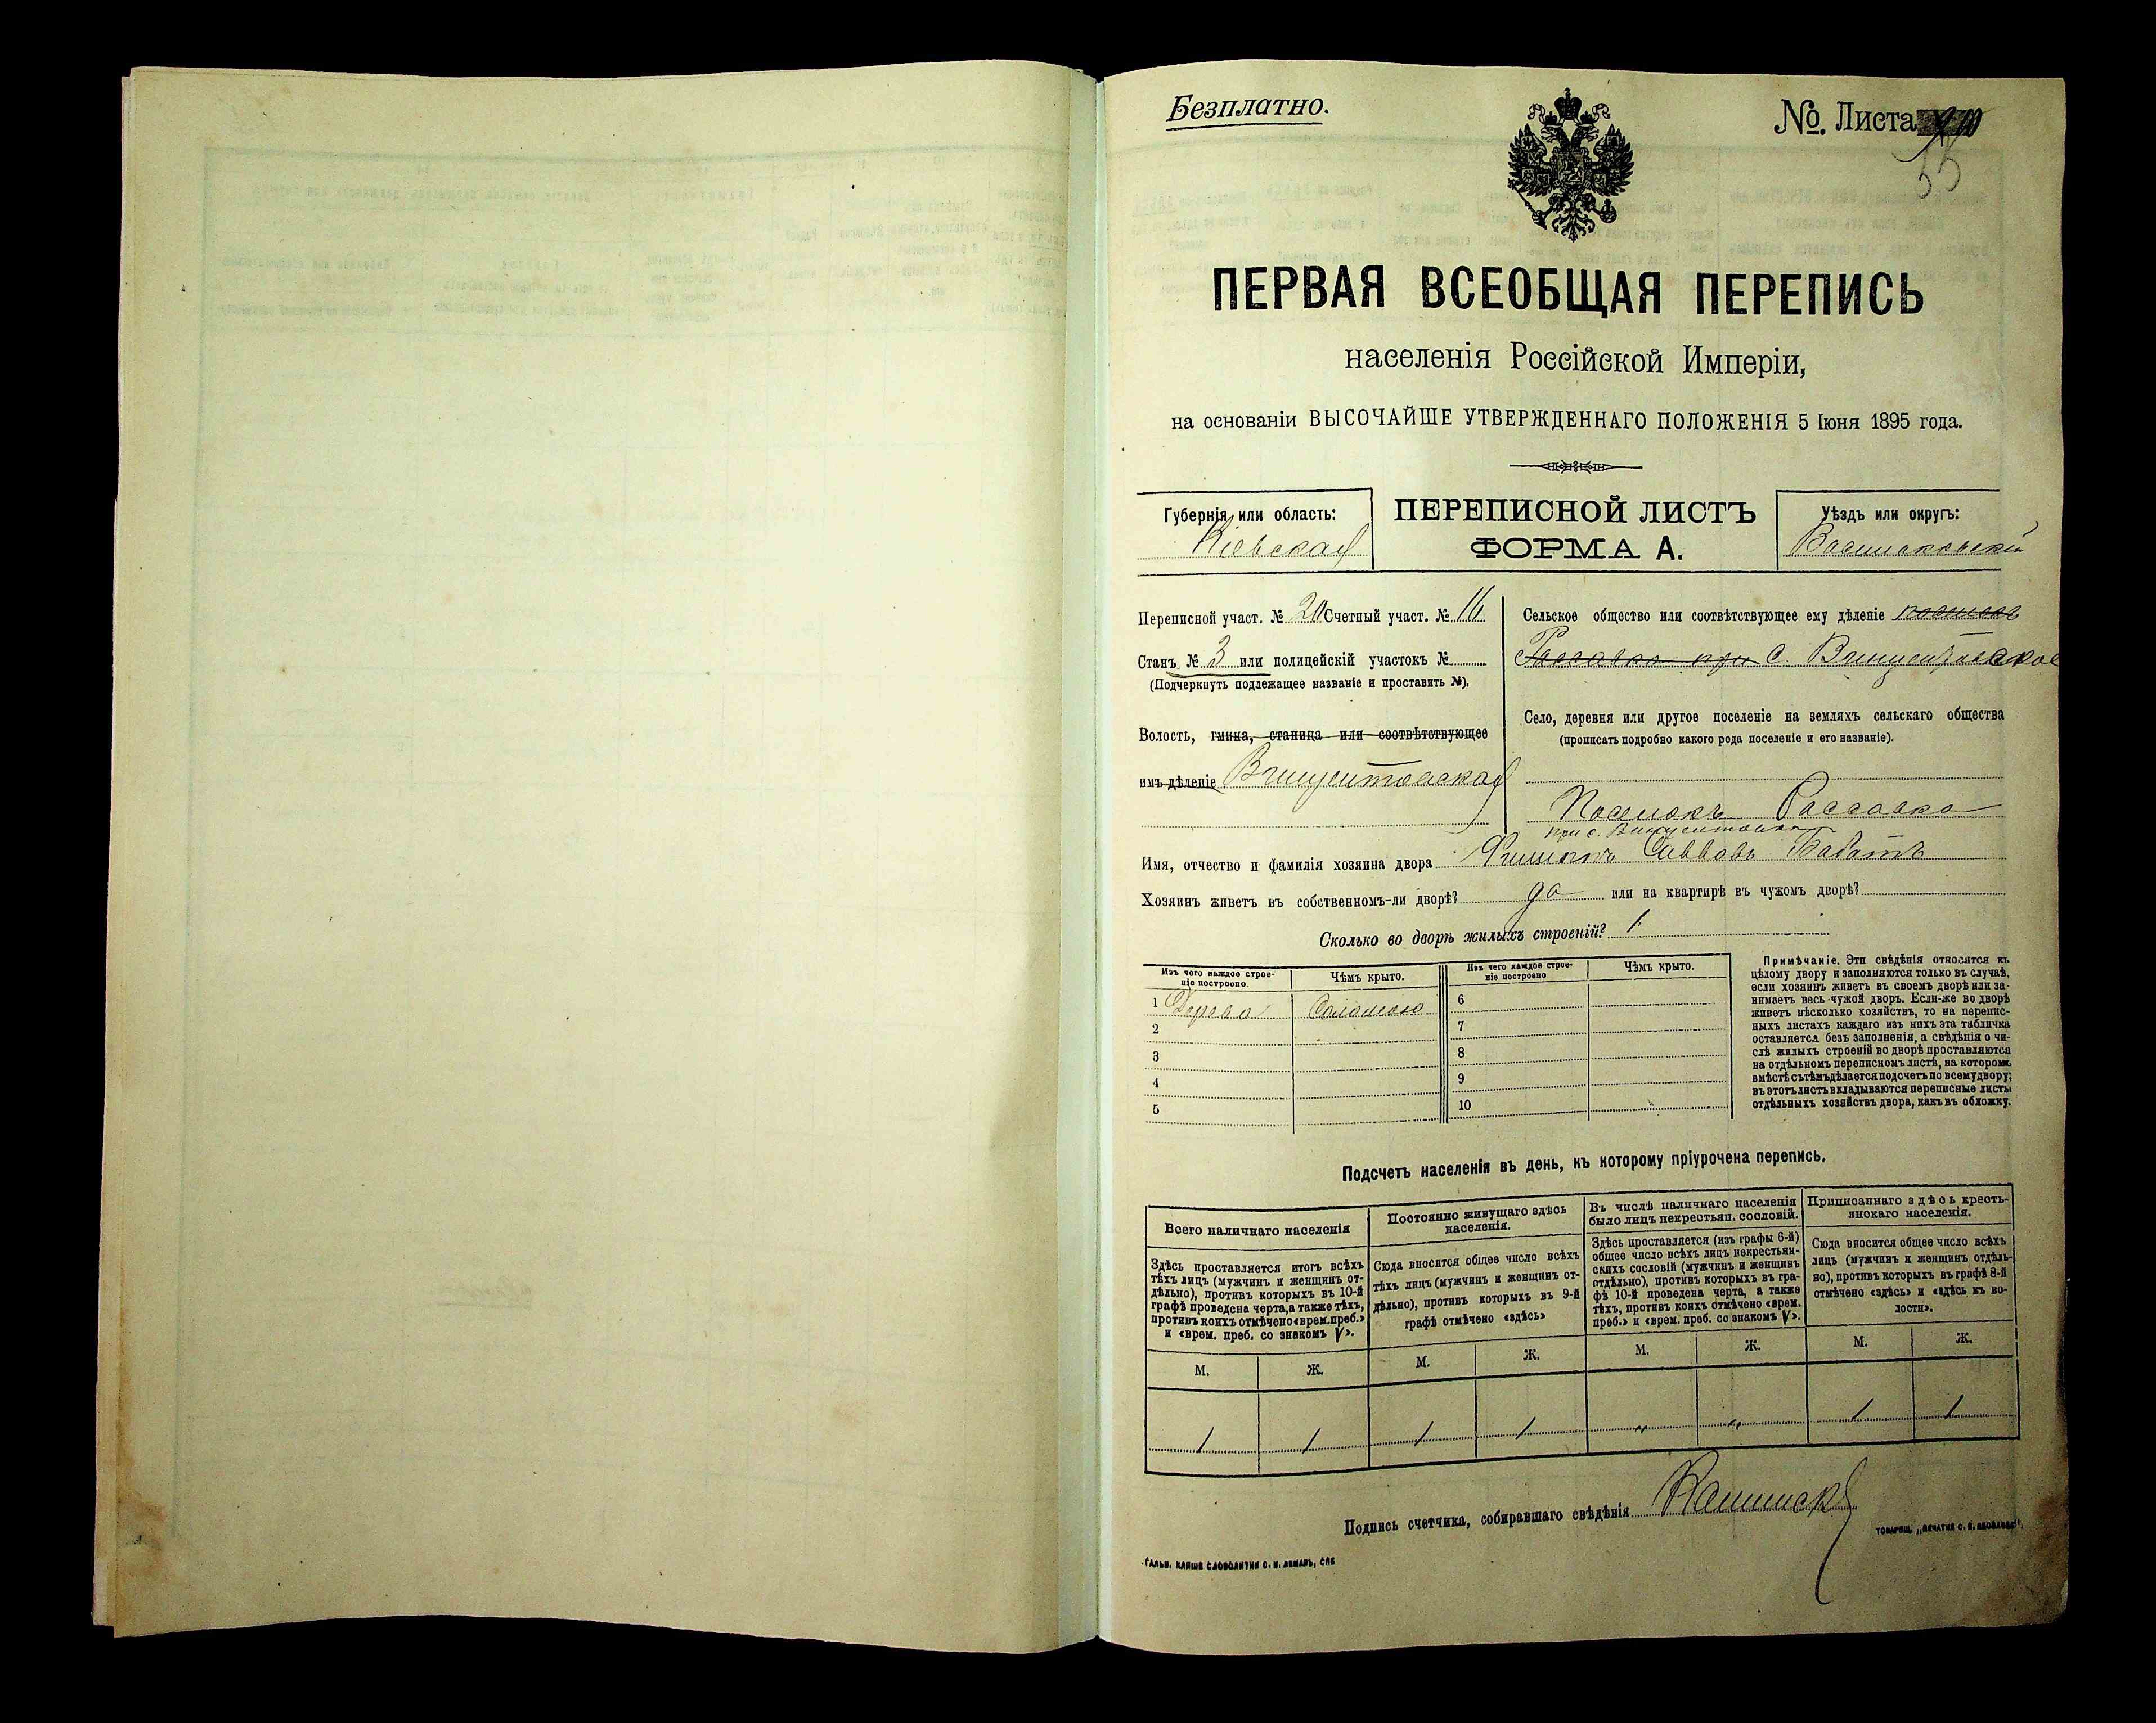 Безплатно.
№. Листа
35
ПЕРВАЯ ВСЕОБЩАЯ ПЕРЕПИСЬ
населенія Россійской Имперіи,
на основаніи ВЫСОЧАЙШЕ УТВЕРЖДЕННАГО ПОЛОЖЕНІЯ 5 Іюня 1895 года.
Губернія или область:
Кіевская
ПЕРЕПИСНОЙ ЛИСТЪ
ФОРМА А.
Уѣздъ или округъ:
Васильковскій
Переписной участ. № 20 Счетный участ. № 16
Станъ № 3 или полицейскій участокъ №
(Подчеркнуть подлежащее названіе и проставить №).
Волость, гмина, станица или соотвѣтствующее
имъ дѣленіе Винцентовская
Сельское общество или соотвѣтствующее ему дѣленіе поселокъ
Россавка при с. Винцентовское
Село, деревня или другое поселеніе на земляхъ сельскаго общества
(прописать подробно какого рода поселеніе и его названіе).
Поселокъ Россавка
при с. Винцентовка
Имя, отчество и фамилія хозяина двора Филиппъ Саввовъ
Хозяинъ живетъ въ собственномъ-ли дворѣ? да или на квартирѣ въ чужомъ дворѣ?
Сколько во дворѣ жилыхъ строеній? 1
Изъ чего каждое строе-
ніе построено.
Чѣмъ крыто.
1 Дерева Соломою
2
3
4
5
Изъ чего каждое строе-
ніе построено
Чѣмъ крыто.
6
7
8
9
10
Примѣчаніе. Эти свѣдѣнія относятся къ
цѣлому двору и заполняются только въ случаѣ,
если хозяинъ живетъ въ своемъ дворѣ или за-
нимаетъ весь чужой дворъ. Если-же во дворѣ
живетъ нѣсколько хозяйствъ, то на перепис-
ныхъ листахъ каждаго изъ нихъ эта табличка
оставляется безъ заполненія, а свѣдѣнія о чи-
слѣ жилыхъ строеній во дворѣ проставляются
на отдѣльномъ переписномъ листѣ, на которомъ
вмѣстѣ съ тѣмъ дѣлается подсчетъ по всему двору;
въ этотъ листъ вкладываются переписные листы
отдѣльныхъ хозяйствъ двора, какъ въ обложку.
Подсчетъ населенія въ день, къ которому пріурочена перепись.
Всего наличнаго населенія
Здѣсь проставляется итогъ всѣхъ
тѣхъ лицъ (мужчинъ и женщинъ от-
дѣльно), противъ которыхъ въ 10-й
графѣ проведена черта, а также тѣхъ,
противъ коихъ отмѣчено «врем. преб.»
и «врем. преб. со знакомъ V».
М. Ж.
1 1
Постоянно живущаго здѣсь
населенія.
Сюда вносится общее число всѣхъ
тѣхъ лицъ (мужчинъ и женщинъ от-
дѣльно), противъ которыхъ въ 9-й
графѣ отмѣчено «здѣсь»
М. Ж.
1 1
Въ числѣ наличнаго населенія
было лицъ некрестьян. сословій.
Здѣсь проставляется (изъ графы 6-й)
общее число всѣхъ лицъ некрестьян-
скихъ сословій (мужчинъ и женщинъ
отдѣльно), противъ которыхъ въ гра-
фѣ 10-й проведена черта, а также
тѣхъ, противъ коихъ отмѣчено «врем.
преб.» и «врем. преб. со знакомъ V».
М. Ж.
" "
Приписаннаго здѣсь кресть-
янскаго населенія.
Сюда вносится общее число всѣхъ
лицъ (мужчинъ и женщинъ отдѣль-
но), противъ которыхъ въ графѣ 8-й
отмѣчено «здѣсь» и «здѣсь въ во-
лости».
М. Ж.
1 1
Подпись счетчика, собиравшаго свѣдѣнія
ТОВАРИЩ. „ПЕЧАТНЯ С. П. ЯКОВЛЕВА".
ГАЛЬВ. КЛИШЕ СЛОВОЛИТНИ О. И. ЛЕМАНЪ, СПБ